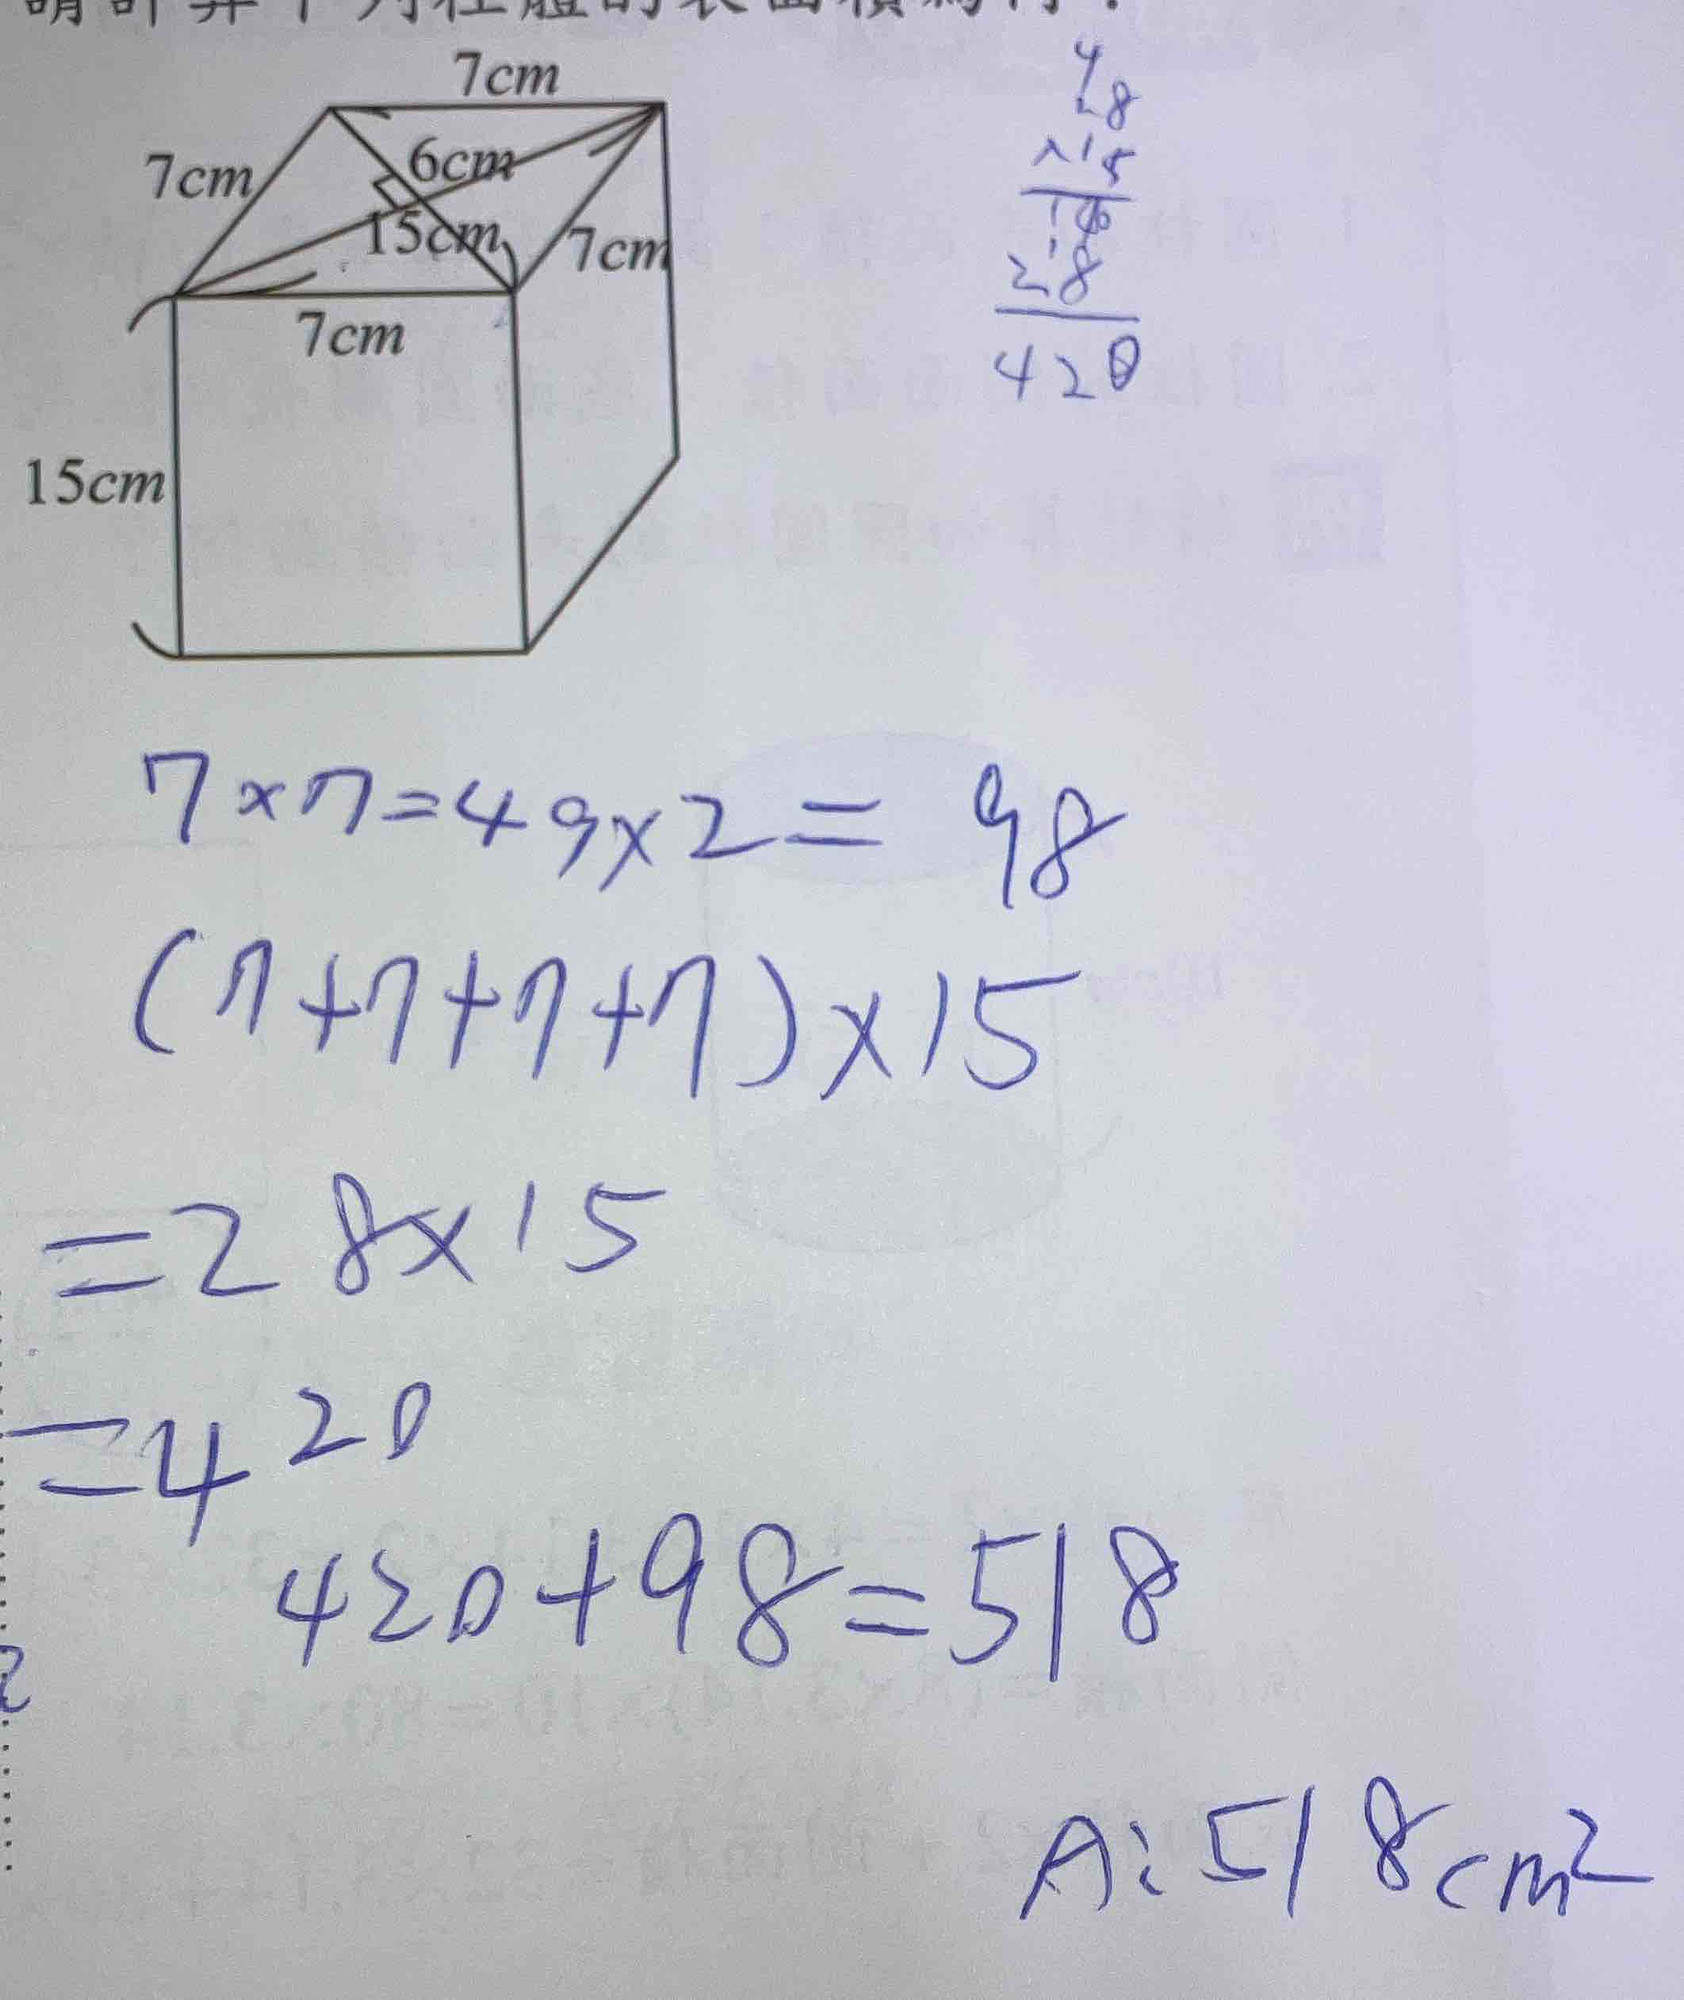 請計算下列柱體的表面積為何？
7cm
7cm
6cm
15cm
7cm
7cm
15cm
28
×15
140
28
420
7×7=49×2=98
(7+7+7+7)×15
=28×15
=420
420+98=518
A:518cm²